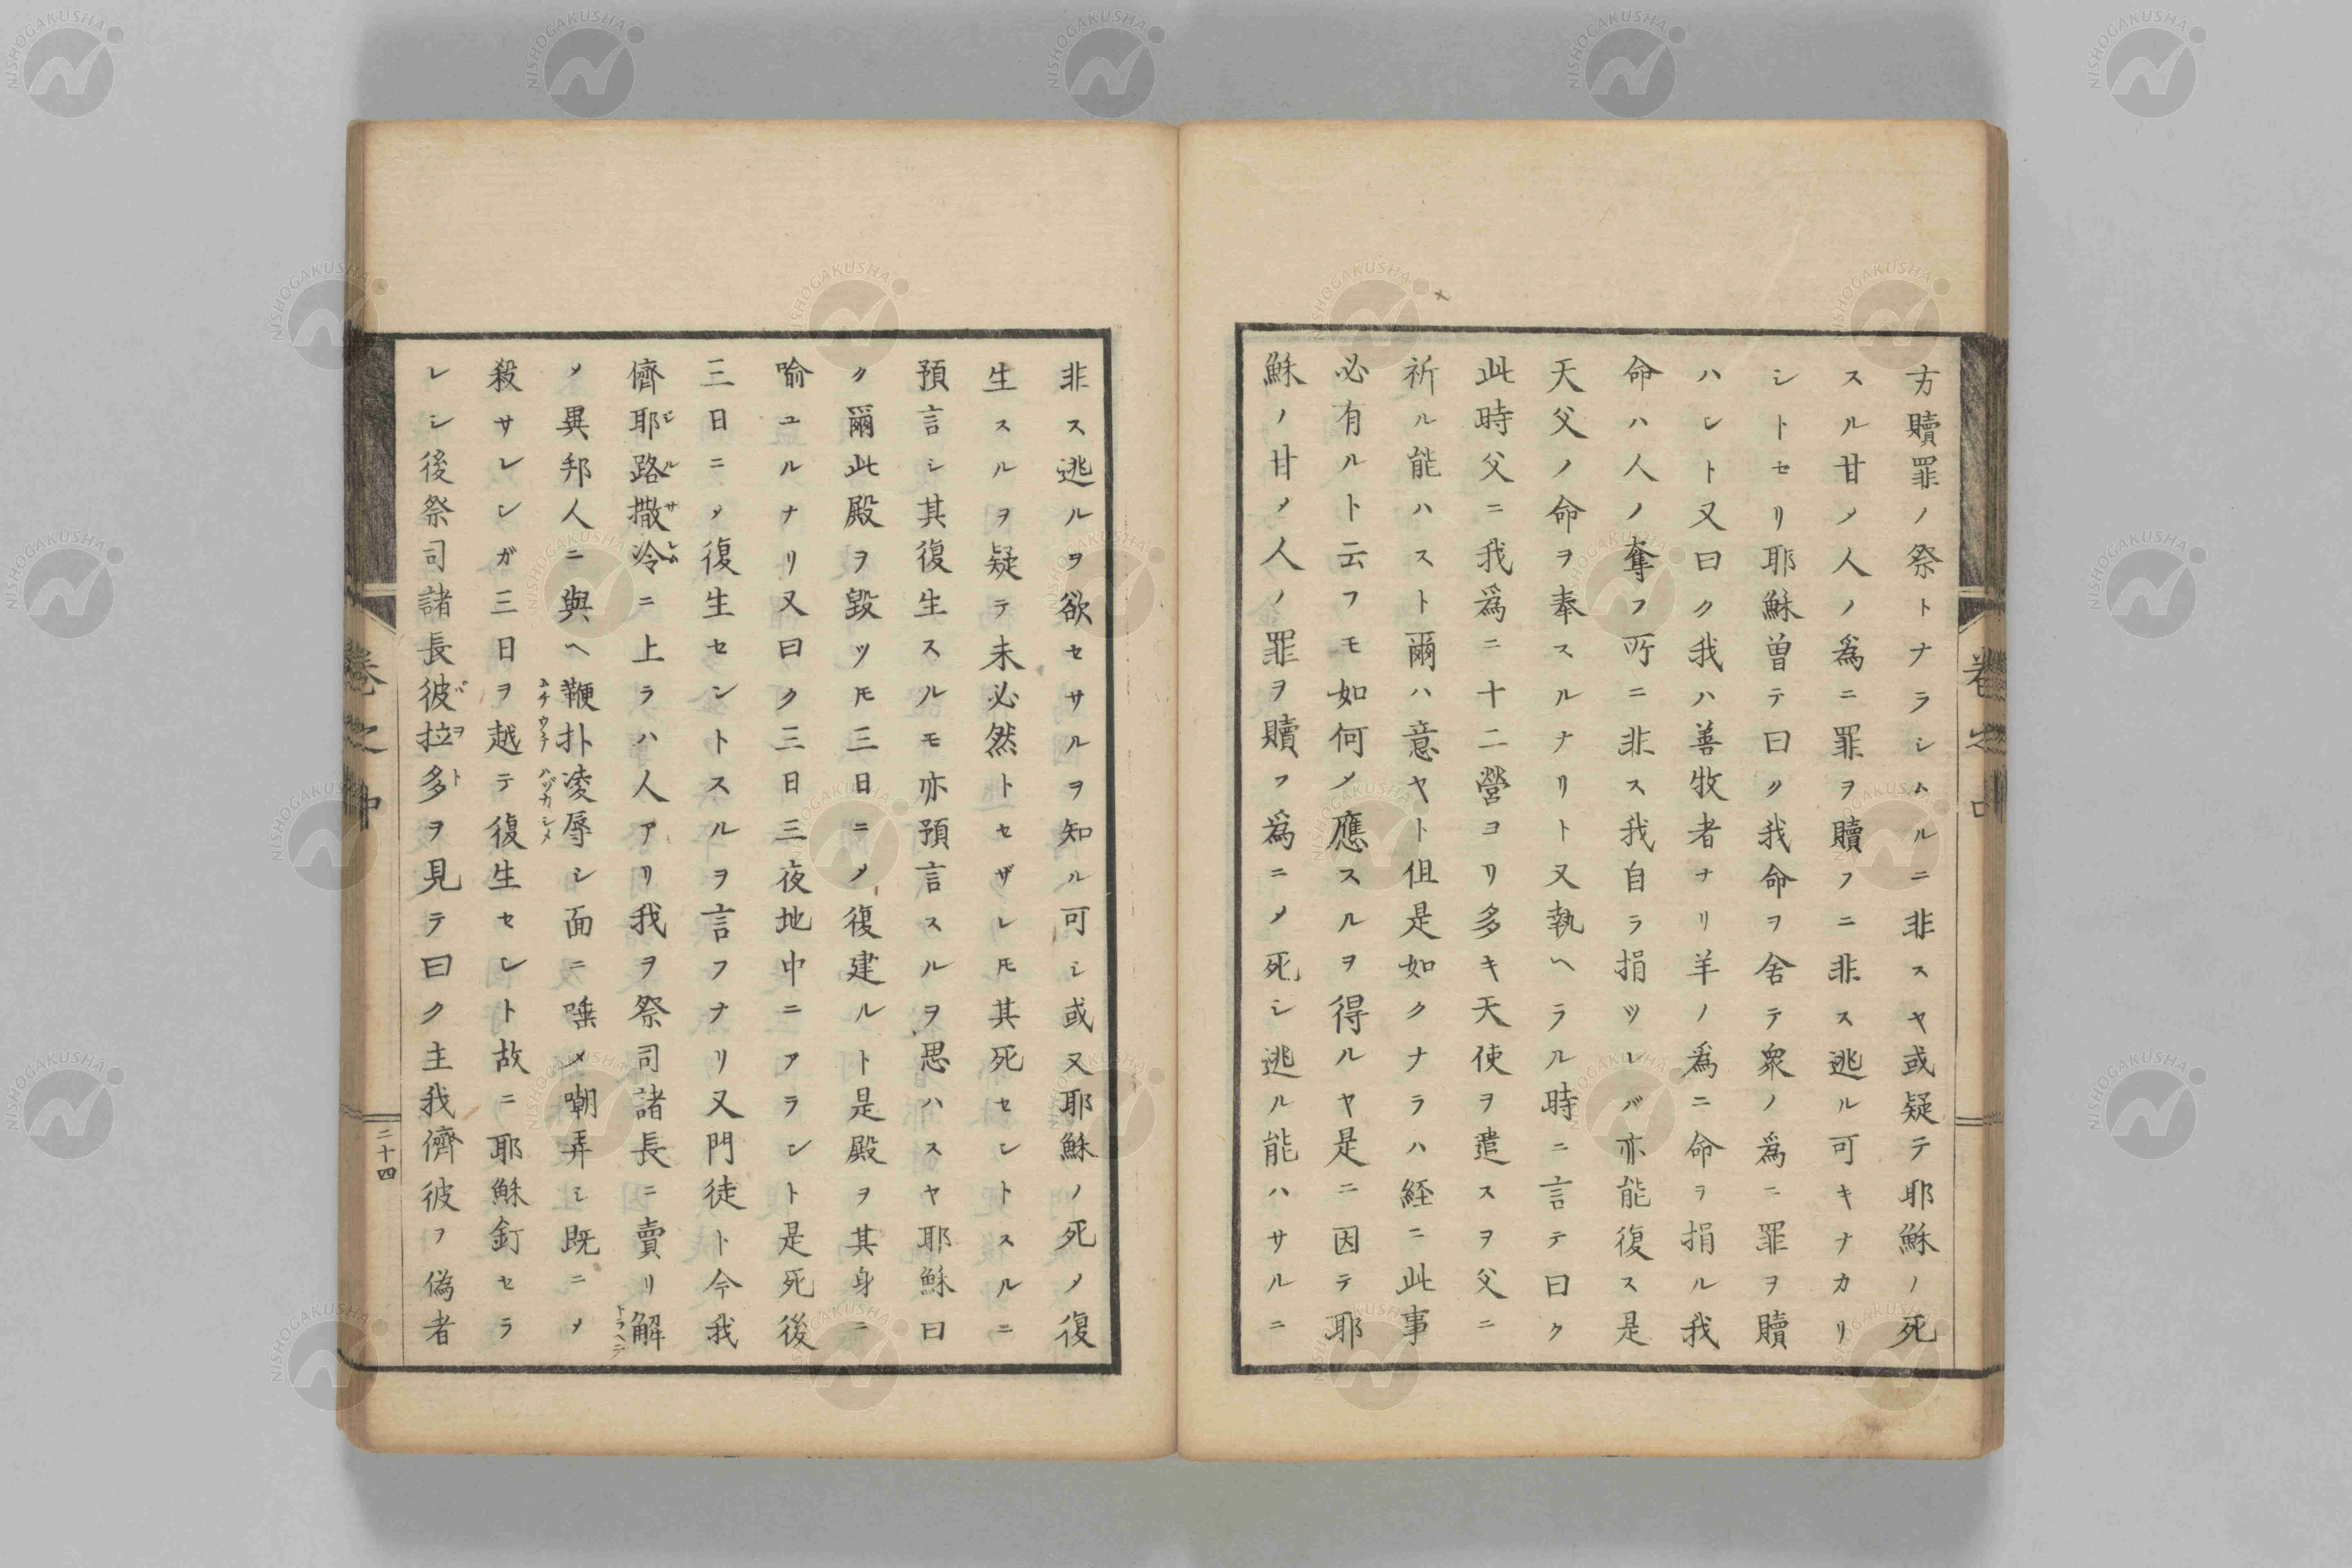 方贖罪ノ祭トナラシムルニ非スヤ或疑テ耶穌ノ死
スル甘〆人ノ爲ニ罪ヲ贖フニ非ス逃ル可キナカリ
シトセリ耶穌曽テ曰ク我命ヲ舍テ衆ノ爲ニ罪ヲ贖
ハントス又曰ク我ハ善牧者ナリ羊ノ爲ニ命ヲ捐ル我
命ハ人ノ奪フ所ニ非ス我自ラ捐ツレバ亦能復ス是
天父ノ命ヲ奉スルナリト又執ヘラル時ニ言テ曰ク
此時父ニ我爲ニ十二營ヨリ多キ天使ヲ遣スヲ父ニ
祈ル能ハスト爾ハ意ヤト但是如クナラハ経ニ此事
必有ルト云フモ如何〆應スルヲ得ルヤ是ニ因テ耶
穌ノ甘〆人ノ罪ヲ贖フ爲ニ〆死シ逃ル能ハサルニ
非ス逃ルヲ欲セサルヲ知ル可シ或又耶穌ノ死〆復
生スルヲ疑テ未必然トセザレ𪜈其死セントスルニ
預言シ其復生スルモ亦預言スルヲ思ハスヤ耶穌曰
ク爾此殿ヲ毀ツ𪜈三日ニ〆復建ルト是殿ヲ其身ニ
喻ユルナリ又曰ク三日三夜地中ニアラント是死後
三日ニ〆復生セントスルヲ言フナリ又門徒ト今我
儕耶路撒冷ニ上ラハ人アリ我ヲ祭司諸長ニ賣リ解
〆異邦人ニ與ヘ鞭扑凌辱シ面ニ唾〆嘲弄シ既ニ〆
殺サレンガ三日ヲ越テ復生セント故ニ耶穌釘セラ
レシ後祭司諸長彼拉多ヲ見テ曰ク主我儕彼ノ偽者
卷之中
二十四
NISHOGAKUSHA